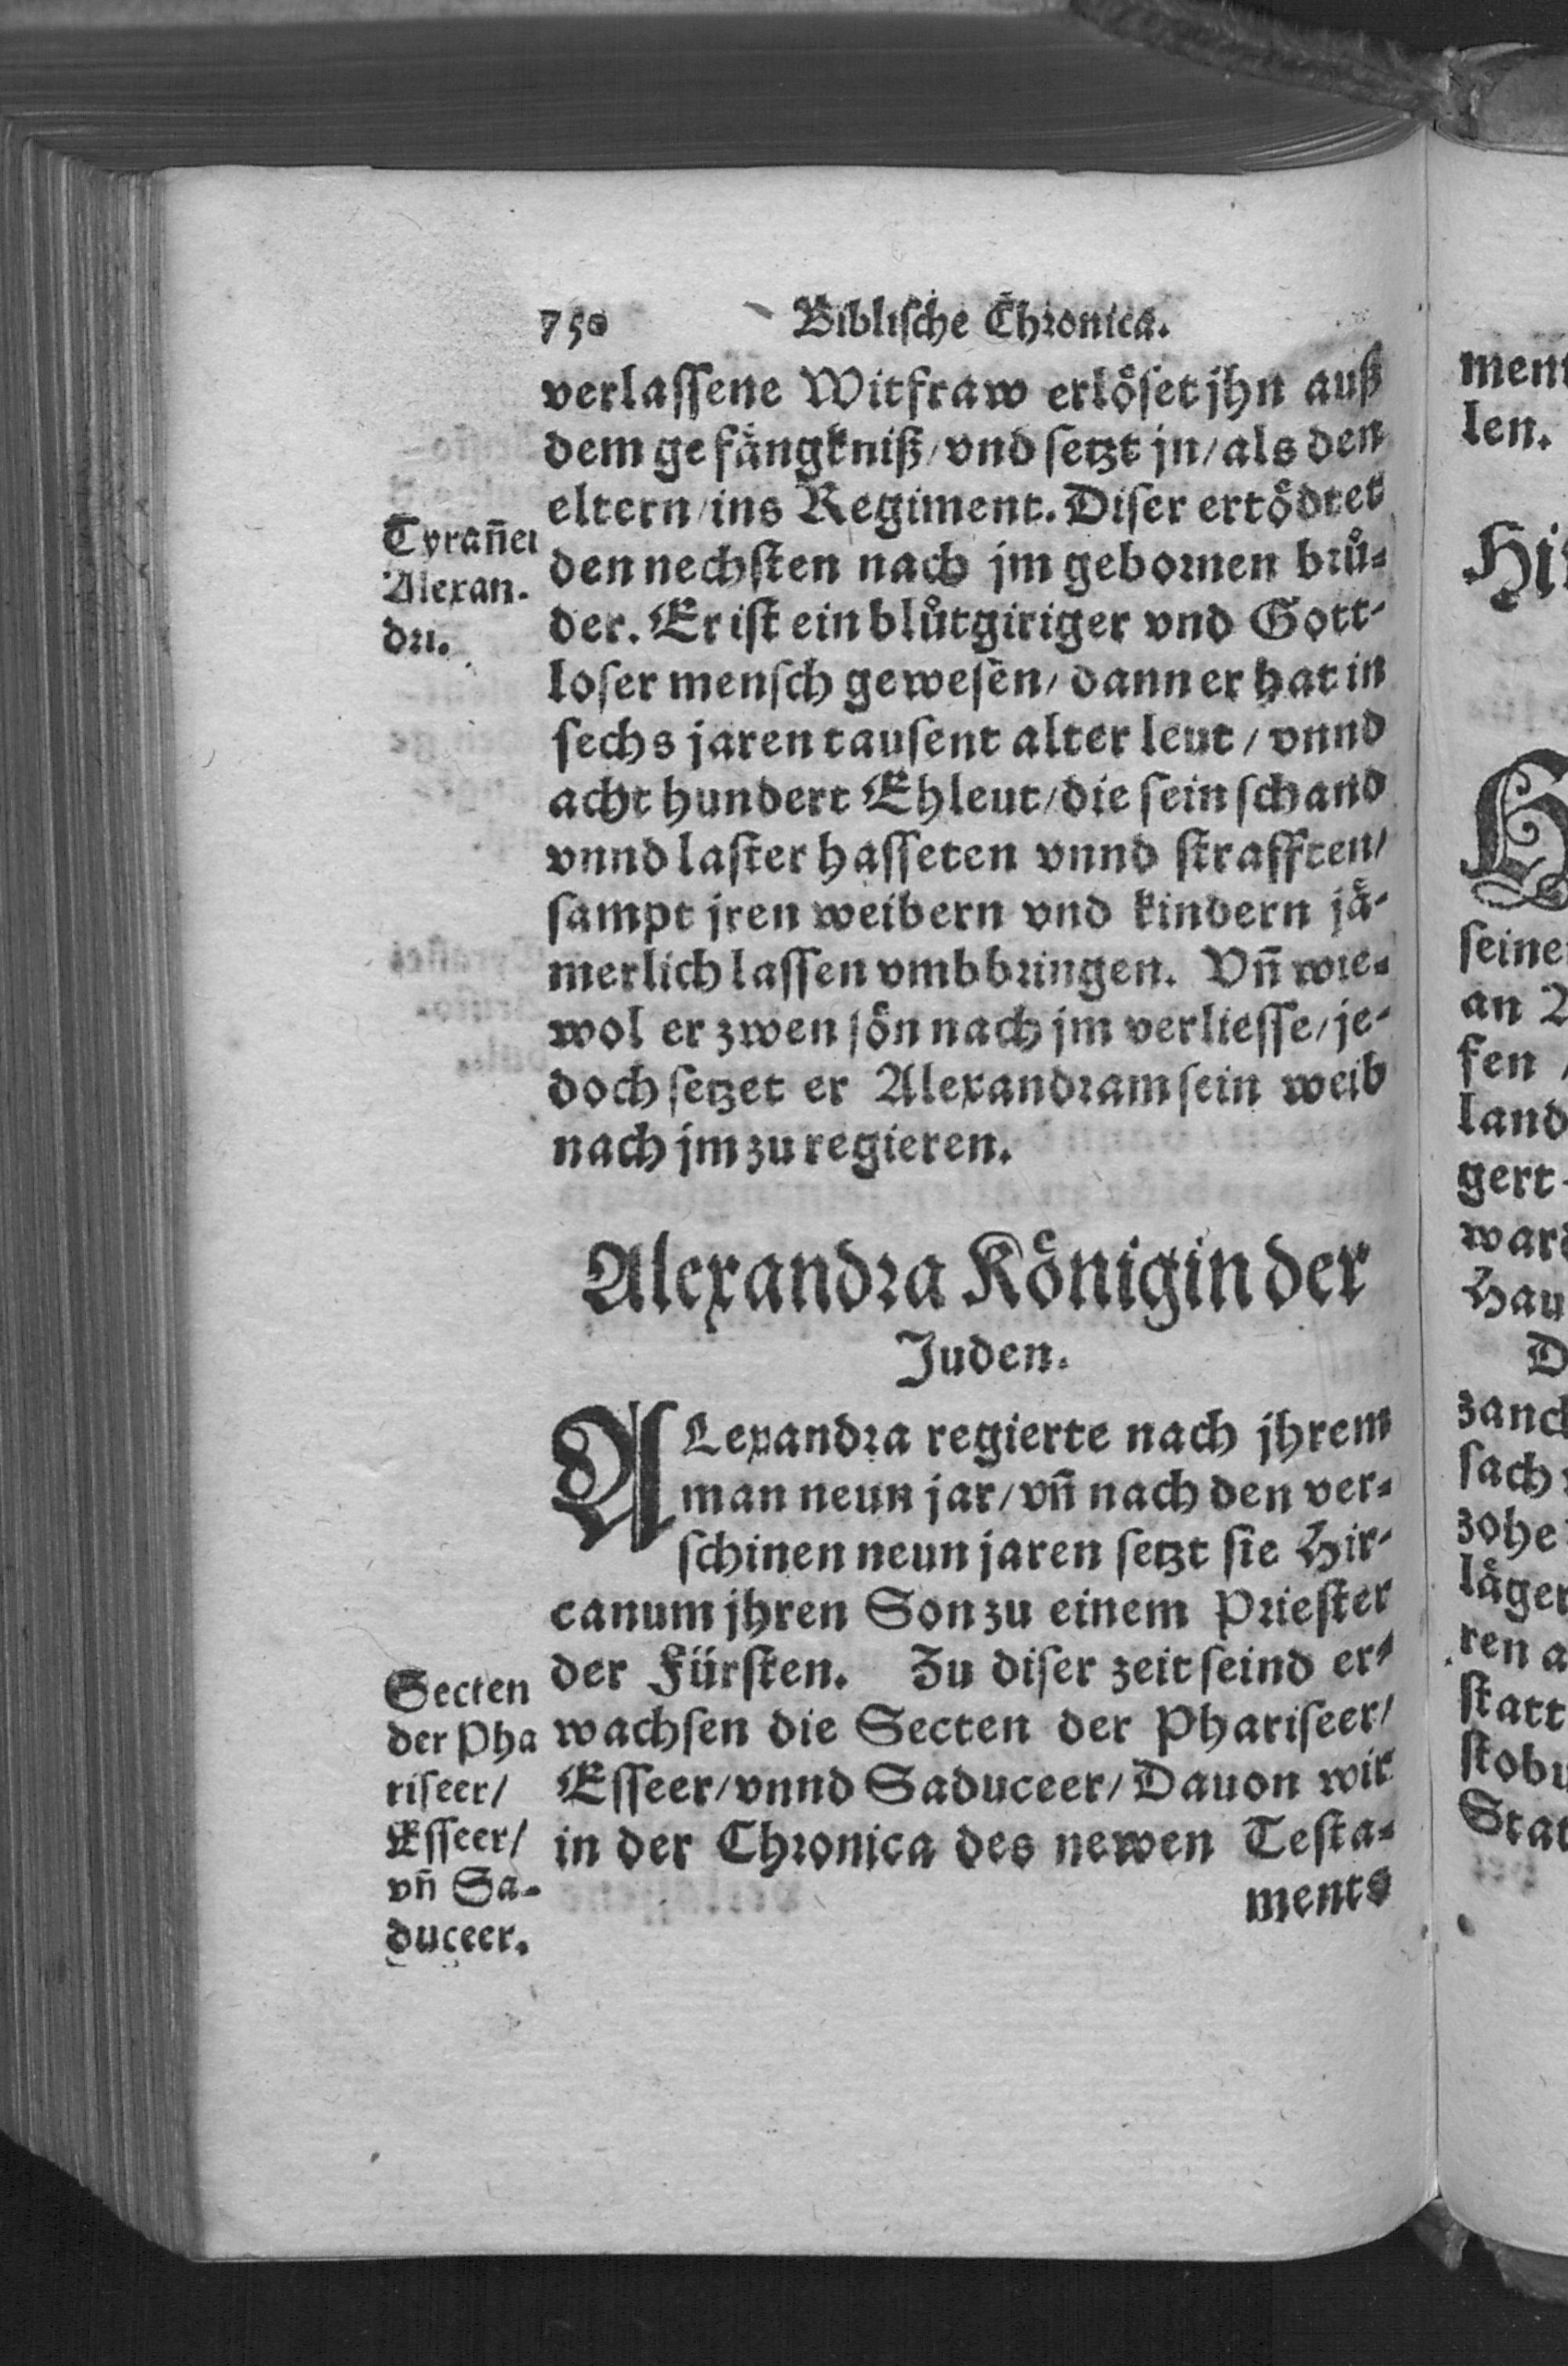 750 Biblische Chronica.
verlassene Witfraw erlöset jhn auß
dem gefängkniß/ vnd setzt jn/ als den
eltern/ ins Regiment. Diser ertödtet
den nechsten nach jm gebornen brů-
der. Er ist ein blůtgiriger vnd Gott-
loser mensch gewesen/ dann er hat in
sechs jaren tausent alter leut/ vnnd
acht hundert Ehleut/ die sein schand
vnnd laster hasseten vnnd strafften/
sampt jren weibern vnd kindern jä-
merlich lassen vmbbringen. Vñ wie-
wol er zwen sön nach jm verliesse/ je-
doch setzet er Alexandram sein weib
nach jm zu regieren.
Tyrañei
Alexan-
dri.
Alexandra Königin der
Juden.
ALexandra regierte nach jhrem
man neun jar/ vñ nach den ver-
schinen neun jaren setzt sie Hir-
canum jhren Son zu einem Priester
der Fürsten. Zu diser zeit seind er-
wachsen die Secten der Phariseer/
Esseer/ vnnd Saduceer/ Dauon wir
in der Chronica des newen Testa-
ments
Secten
der Pha
riseer/
Esseer/
vñ Sa-
duceer.
len.
seine
an
fen
land
gert
Hau
zohe
läger
ren a
statt